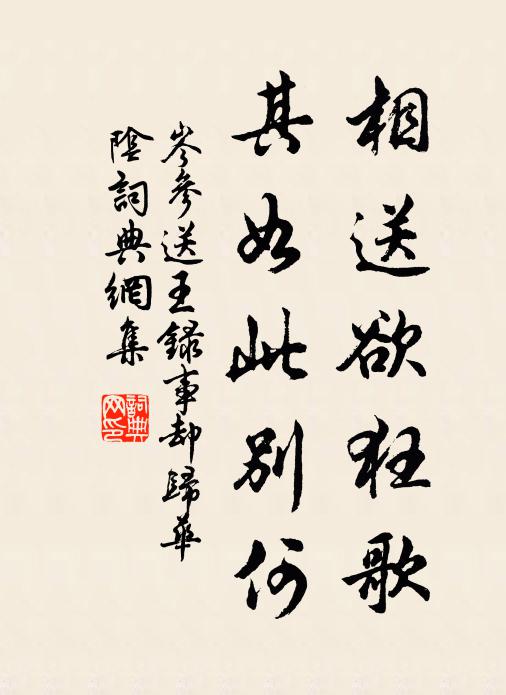 相送欲狂歌
其如此別何
岑參送王録事却歸華
陰詞典網集
詞典
网印